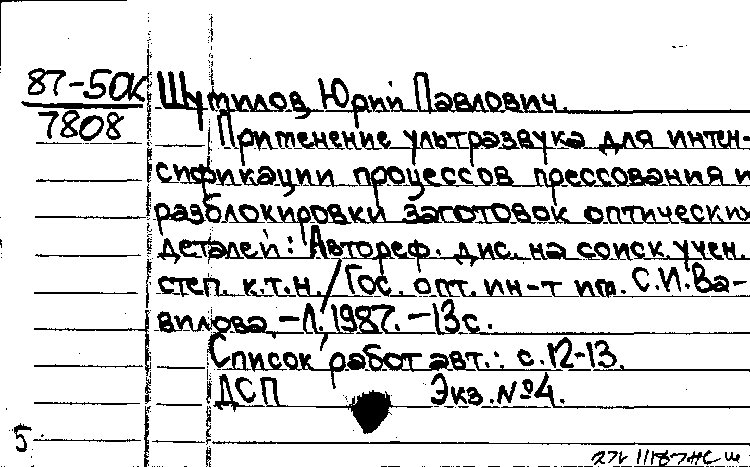 87-50к Шутилов, Юрий Павлович.
7808
Применение ультразвука для интен-
сификации процессов прессования и
разблокировки заготовок оптических
деталей: Автореф. дис. на соиск. учен.
степ. к.т.н. / Гос. опт. ин-т им. С.И. Ва-
вилова, - Л., 1987. - 13 с.
Список работ авт.: с. 12-13.
ДСП Экз. №4.
5